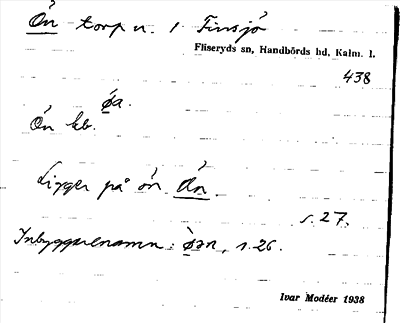 Ön torp u. 1 Finsjö
Fliseryds sn, Handbörds hd, Kalm. l.
438
ø̀a.
Ön kb.
Ligger på ön Ön.
s. 27.
Inbyggarenamn: ø̀ən, s. 26.
Ivar Modéer 1938